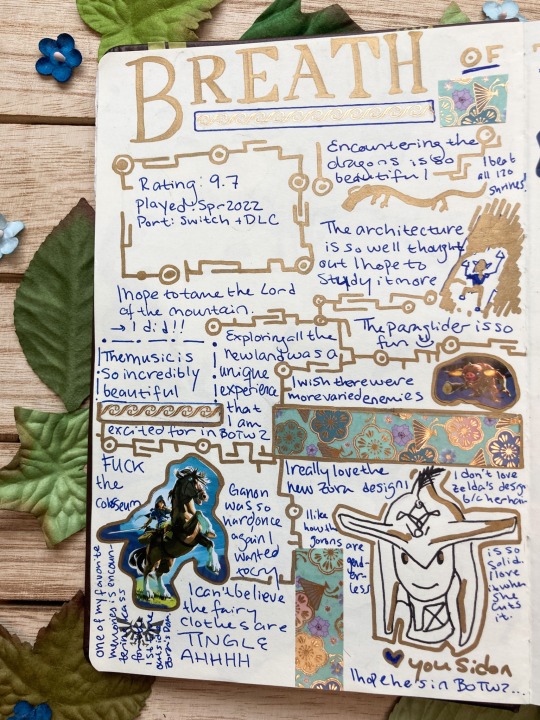 BREATH OF T
Rating: 9.7
played: Spr 2022
Port: Switch + DLC
Encountering the
dragons is so
beautiful
I beat
all 120
shrines!
The architecture
is so well thought
out I hope to
study it more
I hope to tame the Lord
of the mountain.
→ I did!!
The paraglider is so
fun
The music is
so incredibly
beautiful
Exploring all the
new land was a
unique
experience
that
I am
excited for in BoTW 2
I wish there were
more varied enemies
FUCK
the
Coliseum
Ganon
was so
hard once
again I
wanted
to cry
I really love the
new Zora design!
I like
how the
gorons are
gender-
less
I don't love
Zelda's design
b/c her hair
is so
solid
I love
it when
she
cuts
it.
one of my favorite
memories is encoun-
tering
for the
1st time
outside
I can't believe
the fairy
clothes are
TINGLE
AHHHH
you Sidon
I hope he's in BoTW 2...